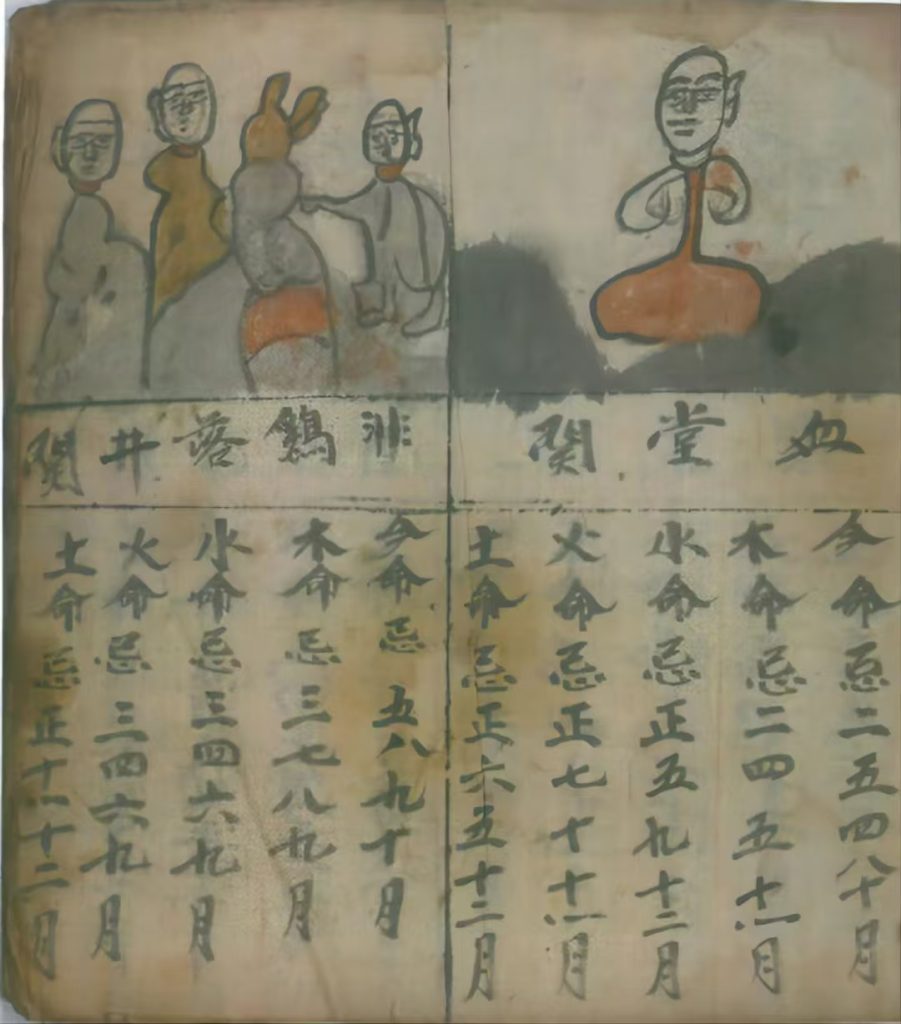 奴堂関
今命忌二五四八十月
木命忌二四五十一月
水命忌正五九十二月
火命忌正七十十一月
土命忌正六五十二月
非鵶落井関
今命忌五八九十月
木命忌三七八九月
水命忌三四六九月
火命忌三四六九月
土命忌正十一十二月